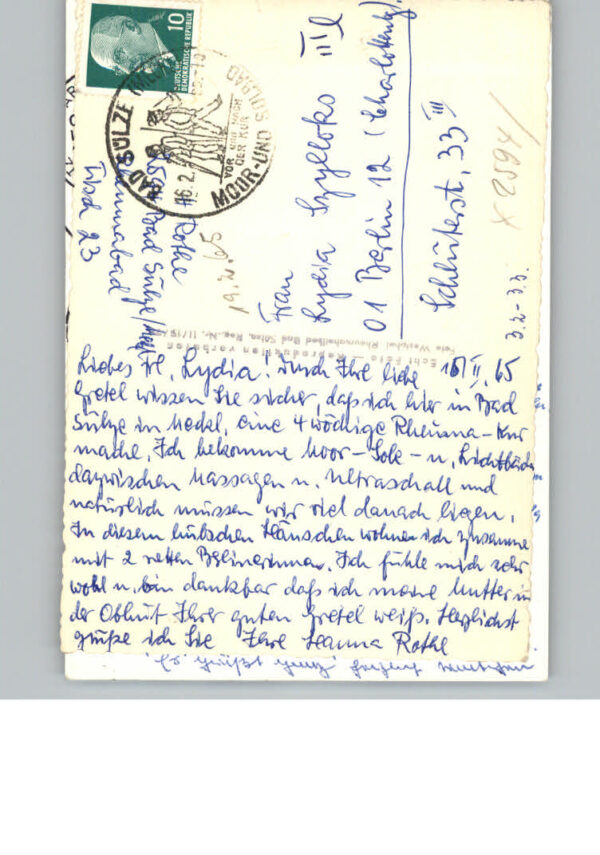 10
DEUTSCHE
DEMOKRATISCHE REPUBLIK
BAD SÜLZE
16.2.
VOR UND NACH
DER KUR
MOOR-UND SOLBAD
H Rothe
Bad Sülze/Meckl
Tisch 23
19.2.65
Frau
Lydia III
01 Berlin 12 (Charlottenbg.)
Schlüterst. 33 III
X 2594/
3.2-3.3.
Echt Foto - Reproduktion verboten
Foto Westphal, Bad Sülze, Reg.-Nr.
Liebes Frl. Lydia! Durch Ihre liebe 16/II. 65
Gretel wissen Sie sicher, daß ich hier in Bad
Sülze in Meckl. eine 4 wöchige Rheuma-Kur
mache. Ich bekomme Moor-Sole- u. Lichtbäder
dazwischen Massagen u. Ultraschall und
natürlich müssen wir viel danach liegen.
In diesem hübschen Häuschen wohne ich zusammen
mit 2 netten Berlinerinnen. Ich fühle mich sehr
wohl u. bin dankbar daß ich meine Mutter in
der Obhut Ihrer guten Gretel weiß. Herzlichst
grüße ich Sie Ihre Hanna Rothe